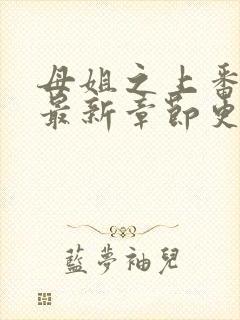 母姐之上番
最新章節史
藍夢袖兒